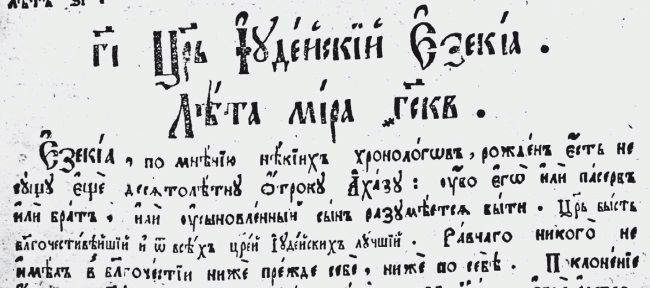 г҃і Цр҃ь Іꙋде́йскїй Є҆зекі́а .
Лѣ́та мі́ра ҂г҃ск҃в .
Є҆зекі́а , по мнѣ́нїю нѣ́кїихъ хроноло́гѡвъ , рожде́нъ є҆́сть не
сꙋ́щꙋ є҆щѐ десѧтолѣ́тнꙋ ѻ҆́трокꙋ А҆ха́зꙋ : ᲂу҆̀бо є҆гѡ̀ и҆лѝ па́сервъ
и҆лѝ бра́тъ , и҆лѝ ᲂу҆сыновле́нный сы́нъ разꙋмѣ́етсѧ бы́ти . Цр҃ь бы́сть
бл҃гочести́вѣйшїй и҆ ѿ всѣ́хъ царе́й І҆ꙋде́йскихъ лꙋ́чшїй . Ра́внаго никого̀ не
и҆мѣ́лъ в бл҃гоче́стїи нижѐ пре́жде себѐ , нижѐ по себѣ̀ . Поклоне́нїе